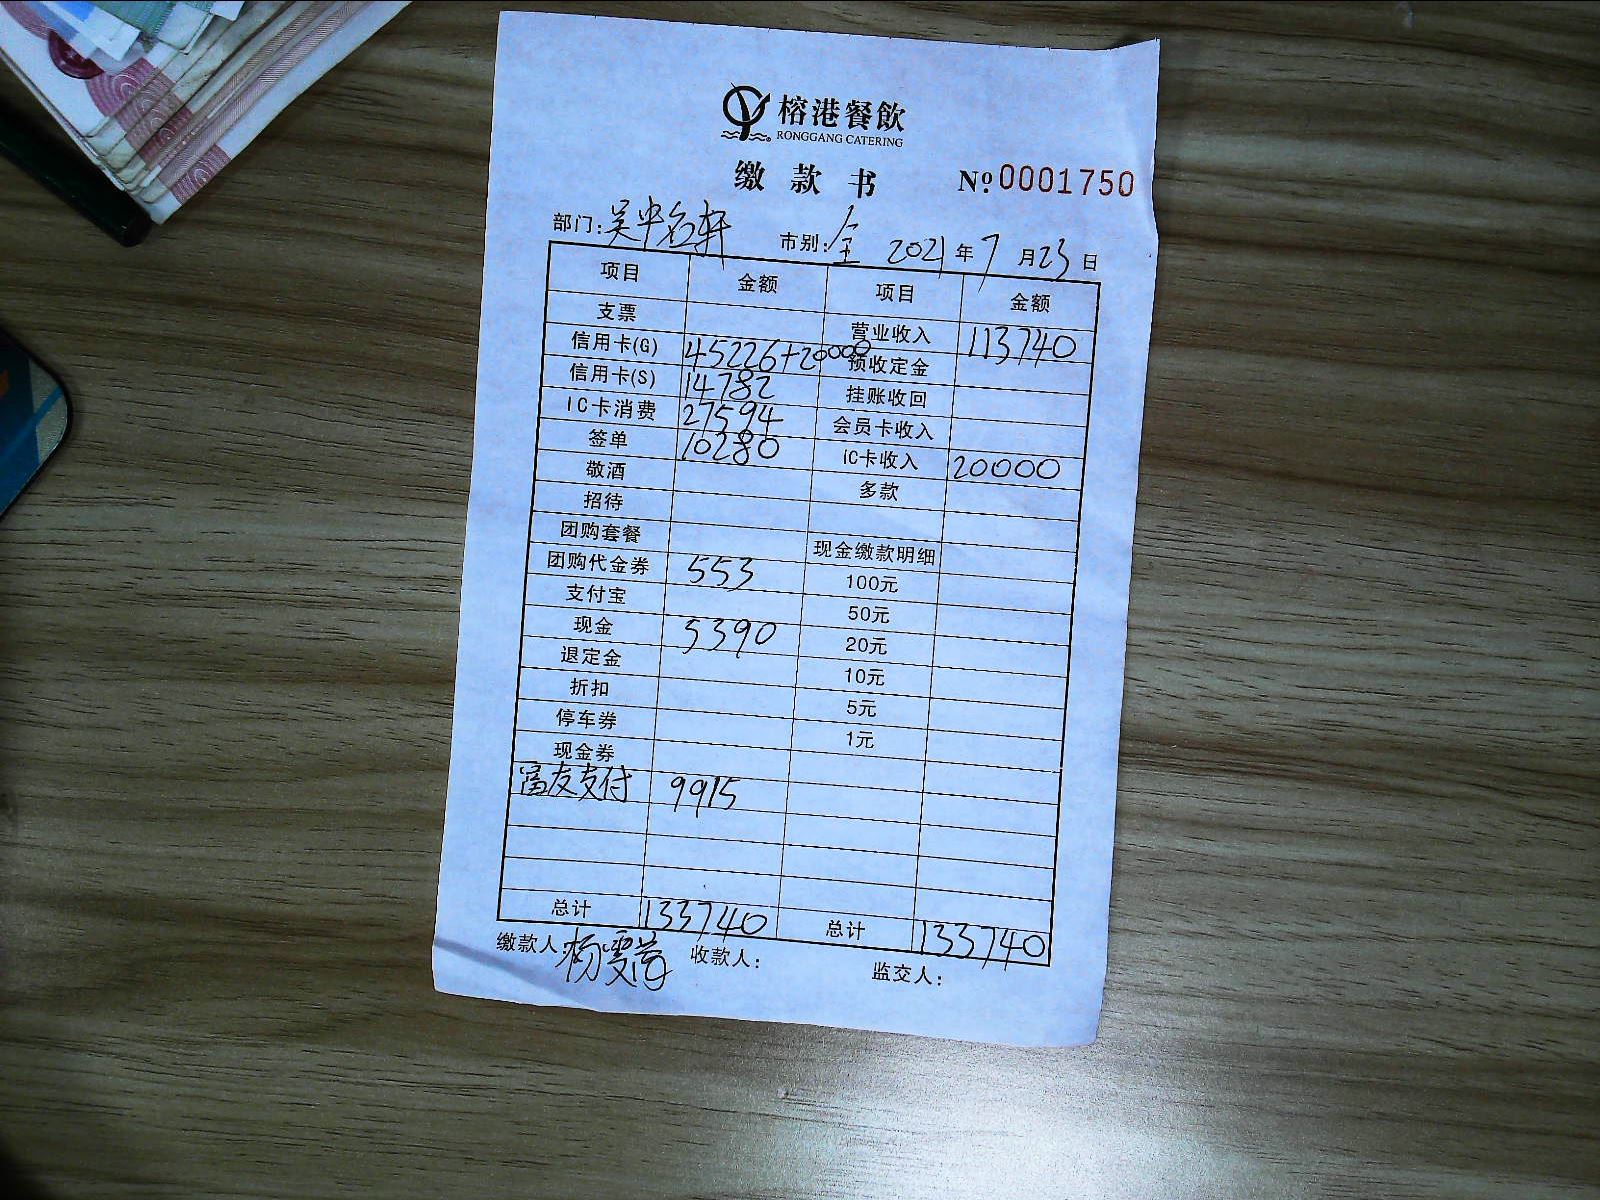 榕港餐飲
RONGGANG CATERING
缴款书 №0001750
部门:吴中名轩 市别:全 2021年7月23日
项目 金额 项目 金额
支票 营业收入 113740
信用卡(G) 45226+20000 预收定金
信用卡(S) 14782 挂账收回
IC卡消费 27594 会员卡收入
签单 10280 IC卡收入 20000
敬酒 多款
招待
团购套餐 现金缴款明细
团购代金券 553 100元
支付宝 50元
现金 5390 20元
退定金 10元
折扣 5元
停车券 1元
现金券
富友支付 9915
总计 133740 总计 133740
缴款人:杨雯 收款人: 监交人: